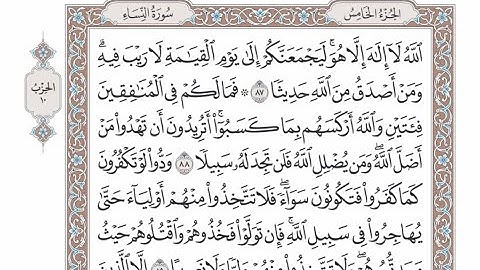 الجُزْءُ الخَامِسُ
سُورَةُ النِّسَاءِ
الحِزْبُ
١٠
ٱللَّهُ لَآ إِلَٰهَ إِلَّا هُوَۚ لَيَجْمَعَنَّكُمْ إِلَىٰ يَوْمِ ٱلْقِيَٰمَةِ لَا رَيْبَ فِيهِۗ
وَمَنْ أَصْدَقُ مِنَ ٱللَّهِ حَدِيثًا ٨٧ * فَمَا لَكُمْ فِي ٱلْمُنَٰفِقِينَ
فِئَتَيْنِ وَٱللَّهُ أَرْكَسَهُم بِمَا كَسَبُوٓا۟ۚ أَتُرِيدُونَ أَن تَهْدُوا۟ مَنْ
أَضَلَّ ٱللَّهُۖ وَمَن يُضْلِلِ ٱللَّهُ فَلَن تَجِدَ لَهُۥ سَبِيلًا ٨٨ وَدُّوا۟ لَوْ تَكْفُرُونَ
كَمَا كَفَرُوا۟ فَتَكُونُونَ سَوَآءًۖ فَلَا تَتَّخِذُوا۟ مِنْهُمْ أَوْلِيَآءَ حَتَّىٰ
يُهَاجِرُوا۟ فِي سَبِيلِ ٱللَّهِۚ فَإِن تَوَلَّوْا۟ فَخُذُوهُمْ وَٱقْتُلُوهُمْ حَيْثُ